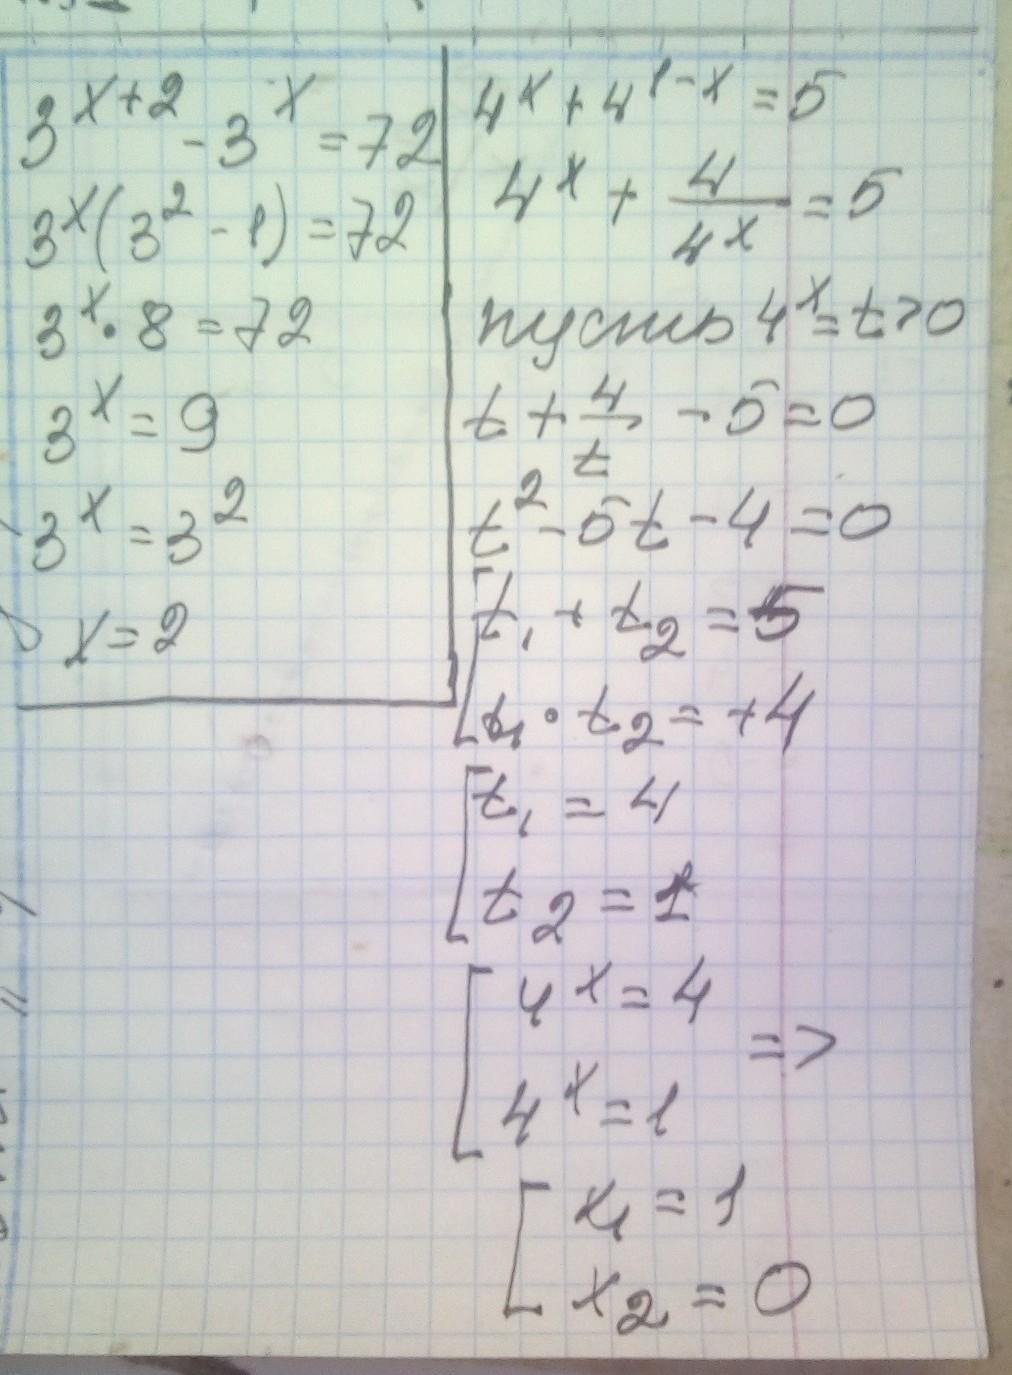 3^{x+2} - 3^x = 72
3^x(3^2 - 1) = 72
3^x · 8 = 72
3^x = 9
3^x = 3^2
x = 2
4^x + 4^{1-x} = 5
4^x + \frac{4}{4^x} = 5
пусть 4^x = t > 0
t + \frac{4}{t} - 5 = 0
t^2 - 5t - 4 = 0
[ t_1 + t_2 = 5
t_1 · t_2 = +4
[ t_1 = 4
t_2 = 1
[ 4^x = 4
=>
4^x = 1
[ x_1 = 1
x_2 = 0